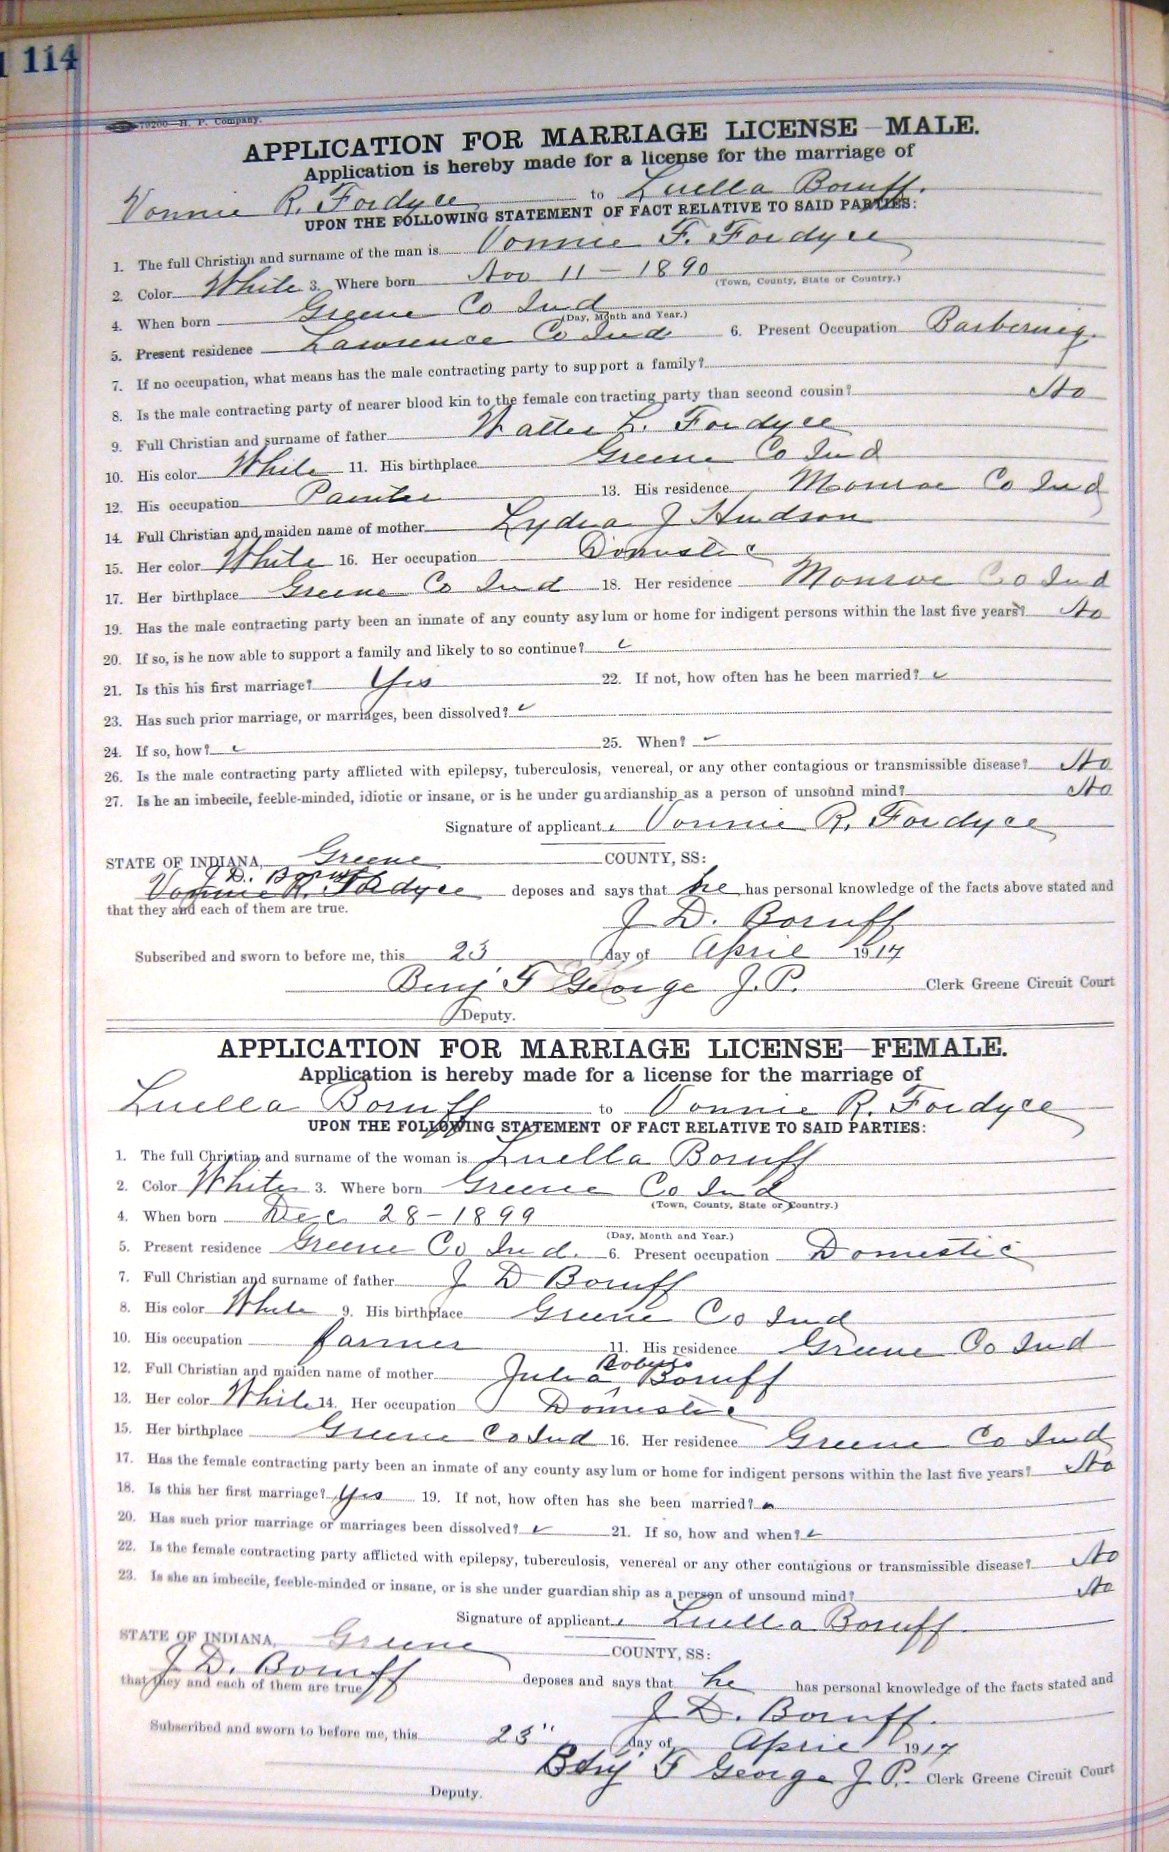 114
79200—H. P. Company.
APPLICATION FOR MARRIAGE LICENSE—MALE.
Application is hereby made for a license for the marriage of
Vonnie R. Fordyce to Luella Boruff.
UPON THE FOLLOWING STATEMENT OF FACT RELATIVE TO SAID PARTIES:
1. The full Christian and surname of the man is Vonnie F. Fordyce
2. Color White 3. Where born Nov 11 — 1890 (Town, County, State or Country.)
4. When born Greene Co Ind (Day, Month and Year.)
5. Present residence Lawrence Co Ind 6. Present Occupation Barbering.
7. If no occupation, what means has the male contracting party to support a family?
8. Is the male contracting party of nearer blood kin to the female contracting party than second cousin? No
9. Full Christian and surname of father Walter L. Fordyce
10. His color White 11. His birthplace Greene Co Ind
12. His occupation Painter 13. His residence Monroe Co Ind
14. Full Christian and maiden name of mother Lydia J Hudson
15. Her color White 16. Her occupation Domestic
17. Her birthplace Greene Co Ind 18. Her residence Monroe Co Ind
19. Has the male contracting party been an inmate of any county asylum or home for indigent persons within the last five years? No
20. If so, is he now able to support a family and likely to so continue? ✓
21. Is this his first marriage? Yes 22. If not, how often has he been married? ✓
23. Has such prior marriage, or marriages, been dissolved? ✓
24. If so, how? ✓ 25. When? ✓
26. Is the male contracting party afflicted with epilepsy, tuberculosis, venereal, or any other contagious or transmissible disease? No
27. Is he an imbecile, feeble-minded, idiotic or insane, or is he under guardianship as a person of unsound mind? No
Signature of applicant, Vonnie R. Fordyce
STATE OF INDIANA, Greene COUNTY, SS:
J. D. Boruff
Vonnie R. Fordyce deposes and says that he has personal knowledge of the facts above stated and
that they and each of them are true.
J D. Boruff
Subscribed and sworn to before me, this 23 day of April 1917
Benj F George J.P. Clerk Greene Circuit Court
Deputy.
APPLICATION FOR MARRIAGE LICENSE—FEMALE.
Application is hereby made for a license for the marriage of
Luella Boruff to Vonnie R. Fordyce
UPON THE FOLLOWING STATEMENT OF FACT RELATIVE TO SAID PARTIES:
1. The full Christian and surname of the woman is Luella Boruff
2. Color White 3. Where born Greene Co Ind
(Town, County, State or Country.)
4. When born Dec 28 — 1899
(Day, Month and Year.)
5. Present residence Greene Co Ind. 6. Present occupation Domestic
7. Full Christian and surname of father J D Boruff
8. His color White 9. His birthplace Greene Co Ind
10. His occupation farmer 11. His residence Greene Co Ind
12. Full Christian and maiden name of mother Julia Boruff
13. Her color White 14. Her occupation Domestic
15. Her birthplace Greene Co Ind 16. Her residence Greene Co Ind
17. Has the female contracting party been an inmate of any county asylum or home for indigent persons within the last five years? No
18. Is this her first marriage? Yes 19. If not, how often has she been married?
20. Has such prior marriage or marriages been dissolved? ✓ 21. If so, how and when? ✓
22. Is the female contracting party afflicted with epilepsy, tuberculosis, venereal or any other contagious or transmissible disease? No
23. Is she an imbecile, feeble-minded or insane, or is she under guardianship as a person of unsound mind? No
Signature of applicant, Luella Boruff.
STATE OF INDIANA, Greene COUNTY, SS:
J. D. Boruff deposes and says that he has personal knowledge of the facts stated and
that they and each of them are true
J. D. Boruff.
Subscribed and sworn to before me, this 23" day of April 1917
Benj F George J.P. Clerk Greene Circuit Court
Deputy.